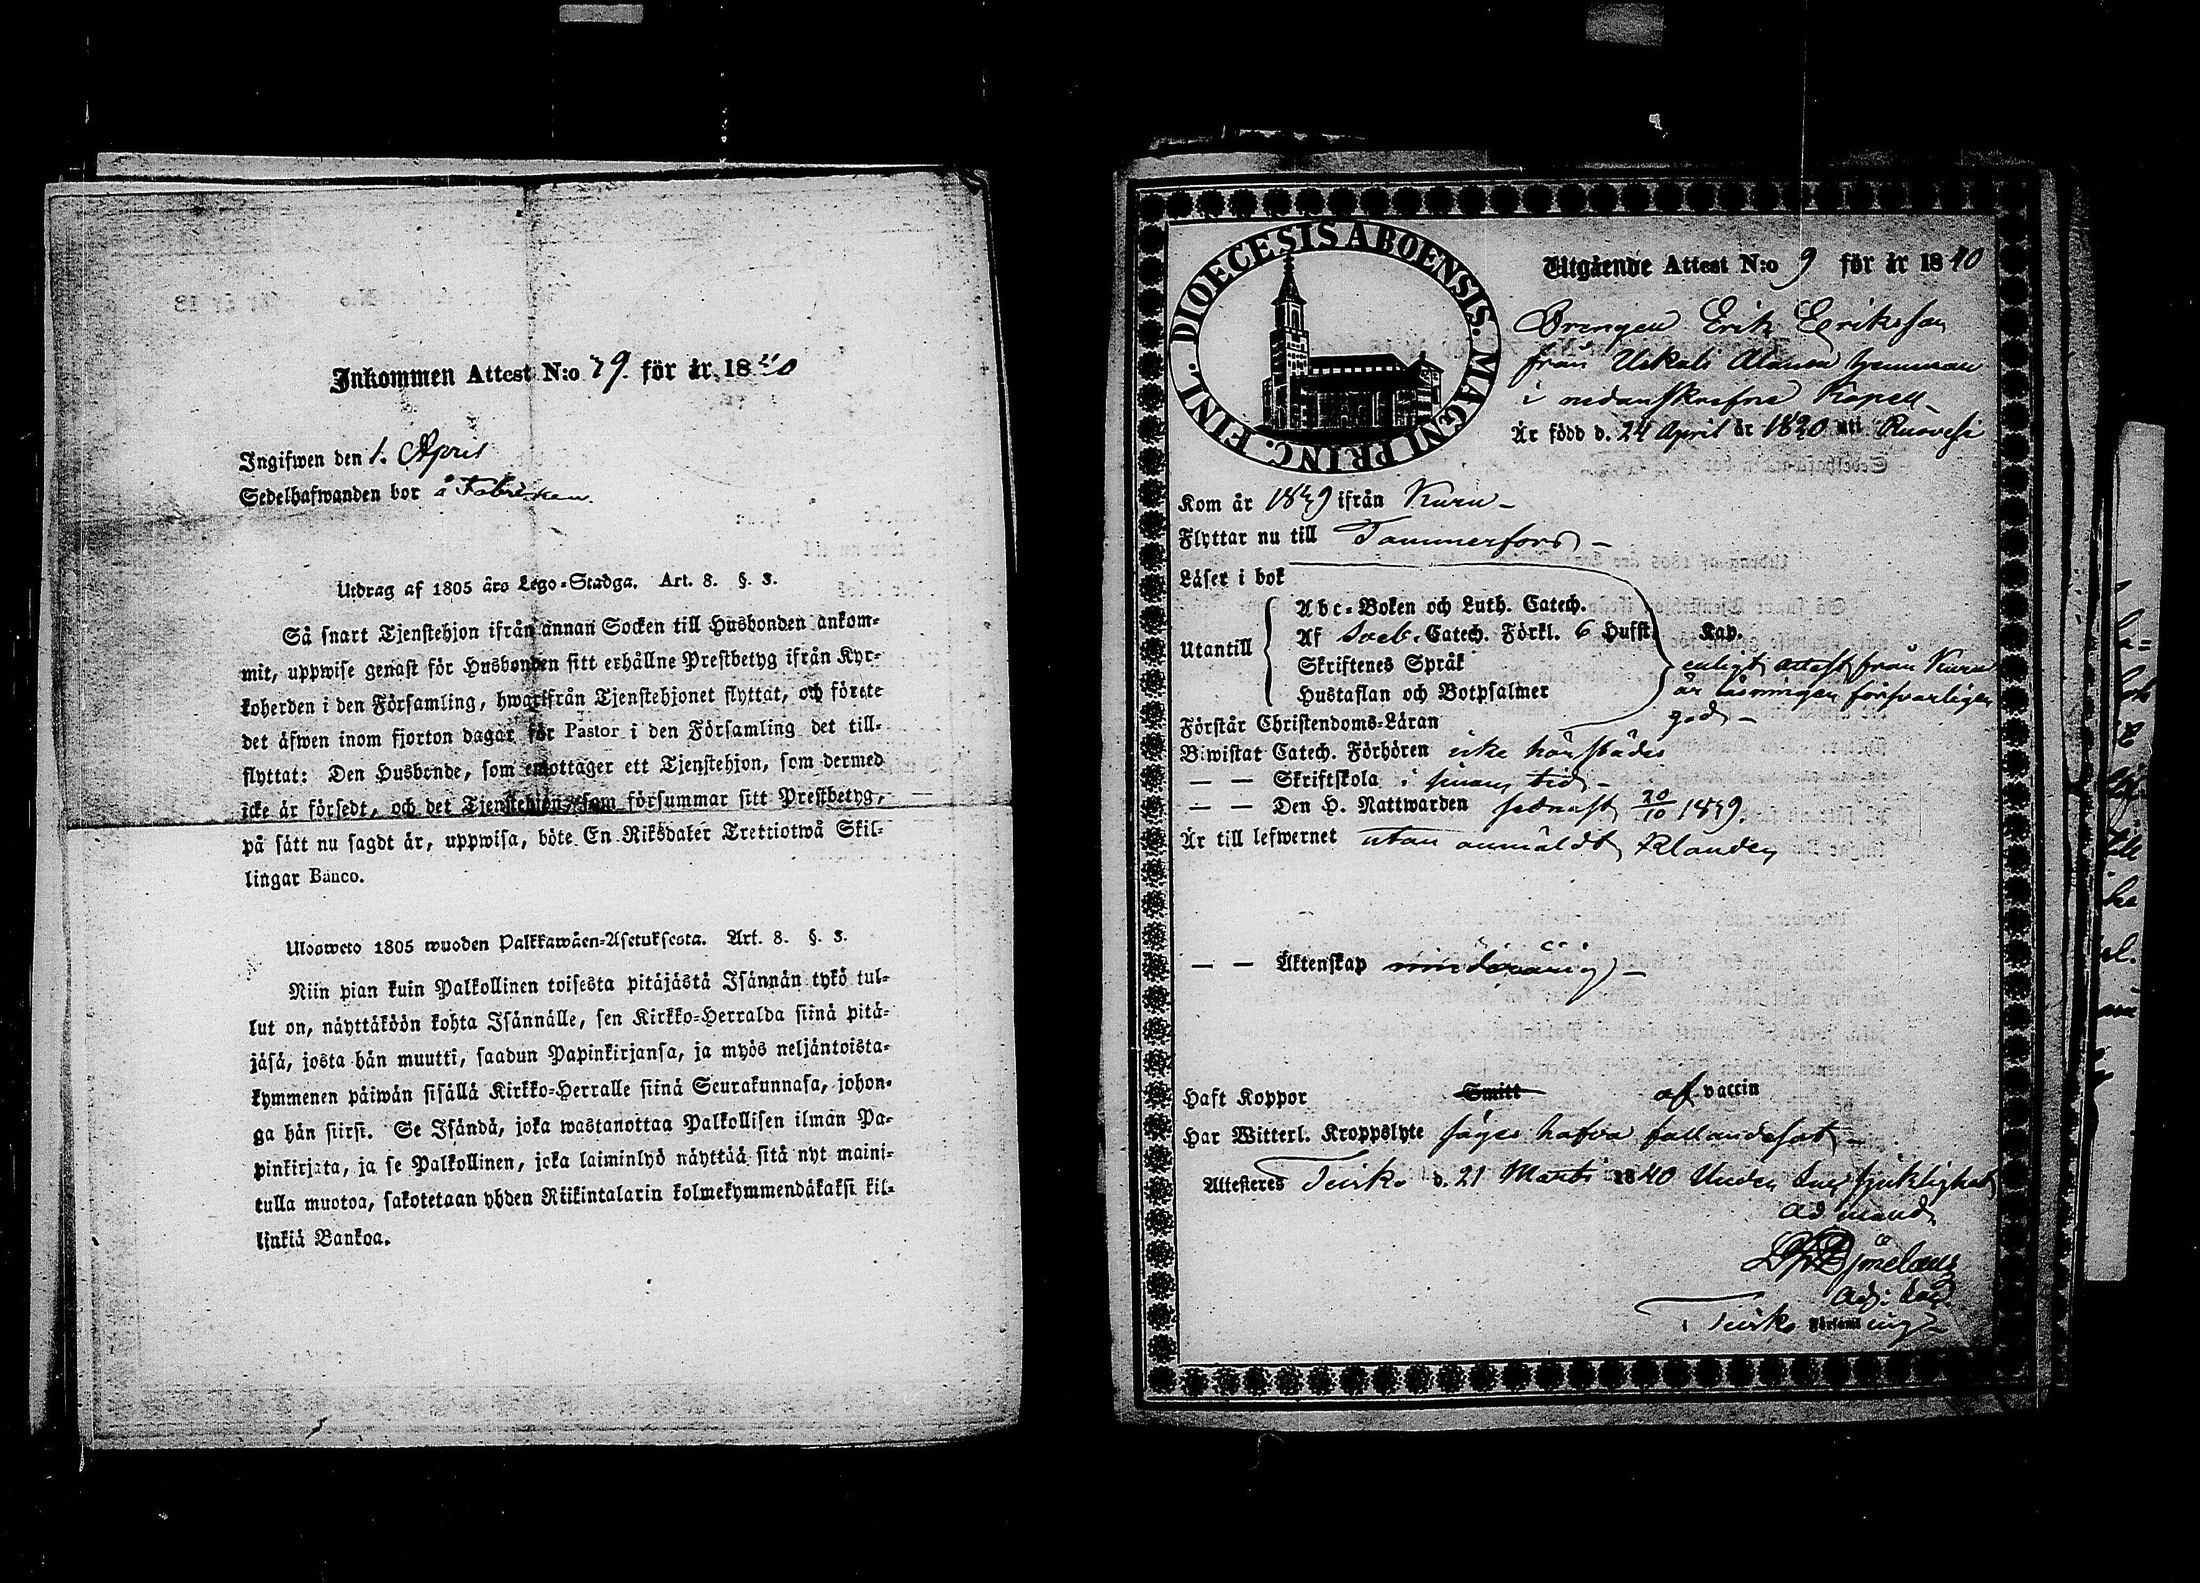 Inkommen Attest N:o 79. för år 1840
Ingifwen den 1. April
Sedelhafwanden bor å Fabriken
Utdrag af 1805 års Lego-Stadga. Art. 8. §. 3.
Så snart Tjenstehjon ifrån annan Socken till Husbonden ankom-
mit, uppwise genast för Husbonden sitt erhållne Prestbetyg ifrån Kyr-
koherden i den Församling, hwartifrån Tjenstehjonet flyttat, och förete
det äfwen inom fjorton dagar för Pastor i den Församling det till-
flyttat: Den Husbonde, som emottager ett Tjenstehjon, som dermed
icke är försedt, och det Tjenstehjon, som försummar sitt Prestbetyg,
på sätt nu sagdt är, uppwisa, böte En Riksdaler Trettiotwå Skil-
lingar Banco.
Ulosweto 1805 wuoden Palkkawäen-Asetuksesta. Art. 8. §. 3.
Niin pian kuin Palkollinen toisesta pitäjästä Isännän tykö tul-
lut on, näyttäköön kohta Isännälle, sen Kirkko-Herralda siinä pitä-
jäsä, josta hän muutti, saadun Papinkirjansa, ja myös neljäntoista-
kymmenen päiwän sisällä Kirkko-Herralle siinä Seurakunnasa, johon-
ga hän siirsi. Se Isändä, joka wastanottaa Palkollisen ilman Pa-
pinkirjata, ja se Palkollinen, joka laiminlyö näyttää sitä nyt maini-
tulla muotoa, sakotetaan yhden Riikintalarin kolmekymmendäkaksi kil-
linkiä Bankoa.
DIOECESIS ABOENSIS. MAGNI PRINC. FINL.
Utgående Attest N:o 9 för år 1840
Drengen Erik Eriksson
från Uskali Alanen hemman
i nedanskrefne Kapell
Är född d. 24 April år 1820 uti Ruovesi
Kom år 1839 ifrån Kuru
Flyttar nu till Tammerfors
Läser i bok
Utantill
Abc-Boken och Luth. Catech.
Af Sveb. Catech. Förkl. 6 Hufst. Kap.
Skriftenes Språk enligt attest från Kuru
Hustaflan och Botpsalmer är läsningen försvarligen
Förstår Christendoms-Läran god
Biwistat Catech. Förhören icke härstädes
— — Skriftskola i sinom tid
— — Den H. Nattwarden sednast 20/10 1839.
Är till lefwernet utan anmäldt klander
— — Äktenskap minderårig
Haft Koppor Smitt af vaccin
Har Witterl. Kroppslyte säges hafva fallandesot
Attesteres Teisko d. 21 Martii 1840 Under
ad mand.
Adj:
i Teisko Församling